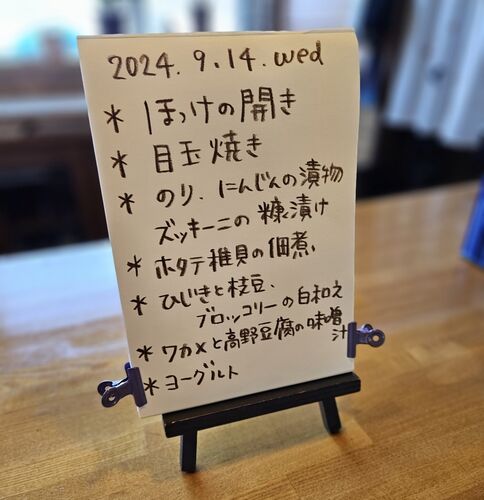 2024. 9. 14. wed
* ほっけの開き
* 目玉焼き
* のり、にんじんの漬物
ズッキーニの糠漬け
* ホタテ稚貝の佃煮、
* ひじきと枝豆、
ブロッコリーの白和え
* ワカメと高野豆腐の味噌汁
* ヨーグルト